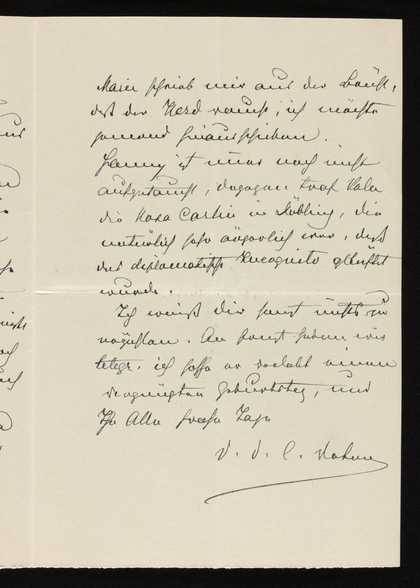 Marie schrieb mir aus der Brühl,
daß der Herd raucht; ich möchte
jemand hinausschicken.
Fanny ist mir noch nicht
aufgetaucht, dagegen traf Kala
die in Döbling, die
natürlich sehr ärgerlich war, daß
das diplomatische Incognito gelüftet
wurde.
Ich weiß dir sonst nichts zu
erzählen. An haben wir
telegr. ich hoffe er verlebt einen
vergnügten Geburtstag, und
Ihr Alle frohe Tage
D. D. l.